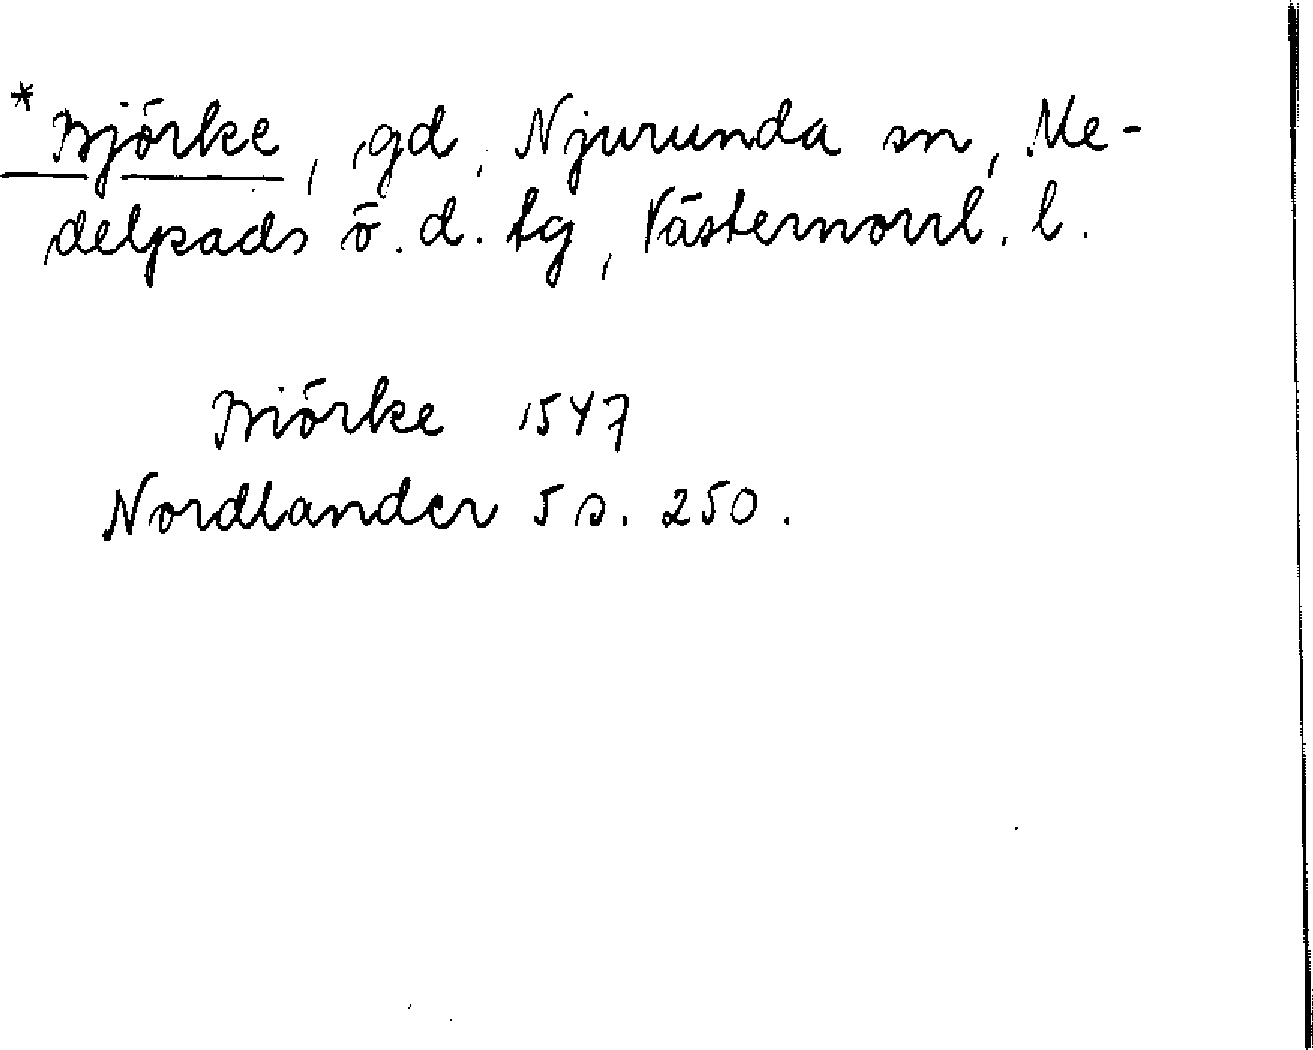 *Björke, gd, Njurunda sn, Me-
delpads ö. d. tg, Västernorrl. l.
Biörke 1547
Nordlander 5 s. 250.